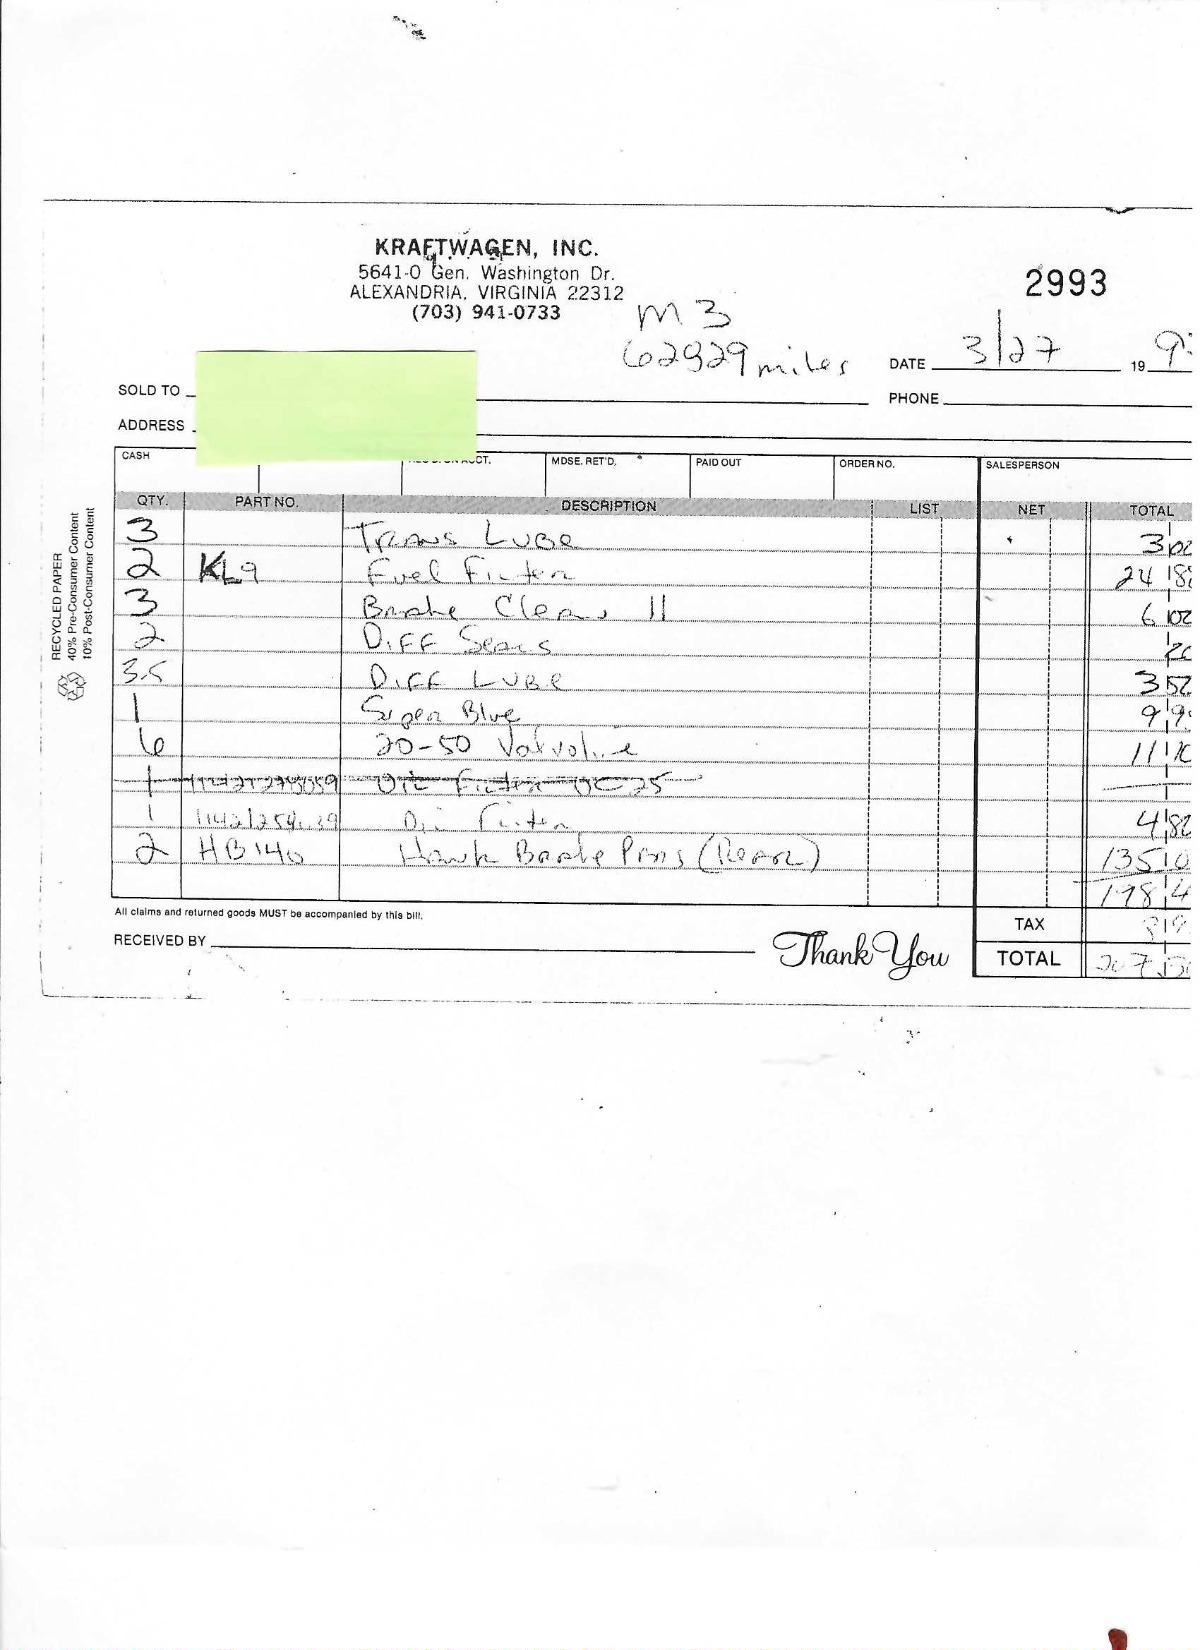 KRAFTWAGEN, INC.
5641-O Gen. Washington Dr.
ALEXANDRIA, VIRGINIA 22312
(703) 941-0733
2993
M3
62829 miles
DATE 3/27 19 9
SOLD TO
PHONE
ADDRESS
CASH MDSE. RET'D. PAID OUT ORDER NO. SALESPERSON
QTY. PART NO. DESCRIPTION LIST NET TOTAL
3 Trans Lube 3 02
2 KL9 Fuel Filter 24 8
3 Brake Clean 6 02
2 Diff Seals
3.5 Diff Lube 3 52
1 Super Blue 9 9
6 20-50 Valvoline 11 10
1 Oil Filter OC25
1 Oil Filter 4 82
2 HB 140 Hawk Brake Pads (Rear) 135 0
198 4
All claims and returned goods MUST be accompanied by this bill.
TAX
RECEIVED BY Thank You TOTAL 207
RECYCLED PAPER
40% Pre-Consumer Content
10% Post-Consumer Content